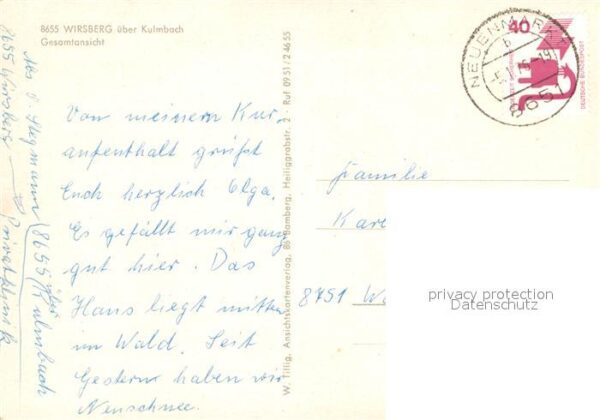 8655 WIRSBERG über Kulmbach
Gesamtansicht
Von meinem Kur-
aufenthalt grüßt
Euch herzlich Olga.
Es gefällt mir ganz
gut hier. Das
Haus liegt mitten
im Wald. Seit
Gestern haben wir
Neuschnee.
8655 Wirsberg
(8655) über Kulmbach
W. Tillig, Ansichtskartenverlag, 86 Bamberg, Heiliggrabstr. 2 · Ruf 0951/24655
NEUENMARKT
b
8651
40
DEUTSCHE BUNDESPOST
Familie
8751
privacy protection
Datenschutz